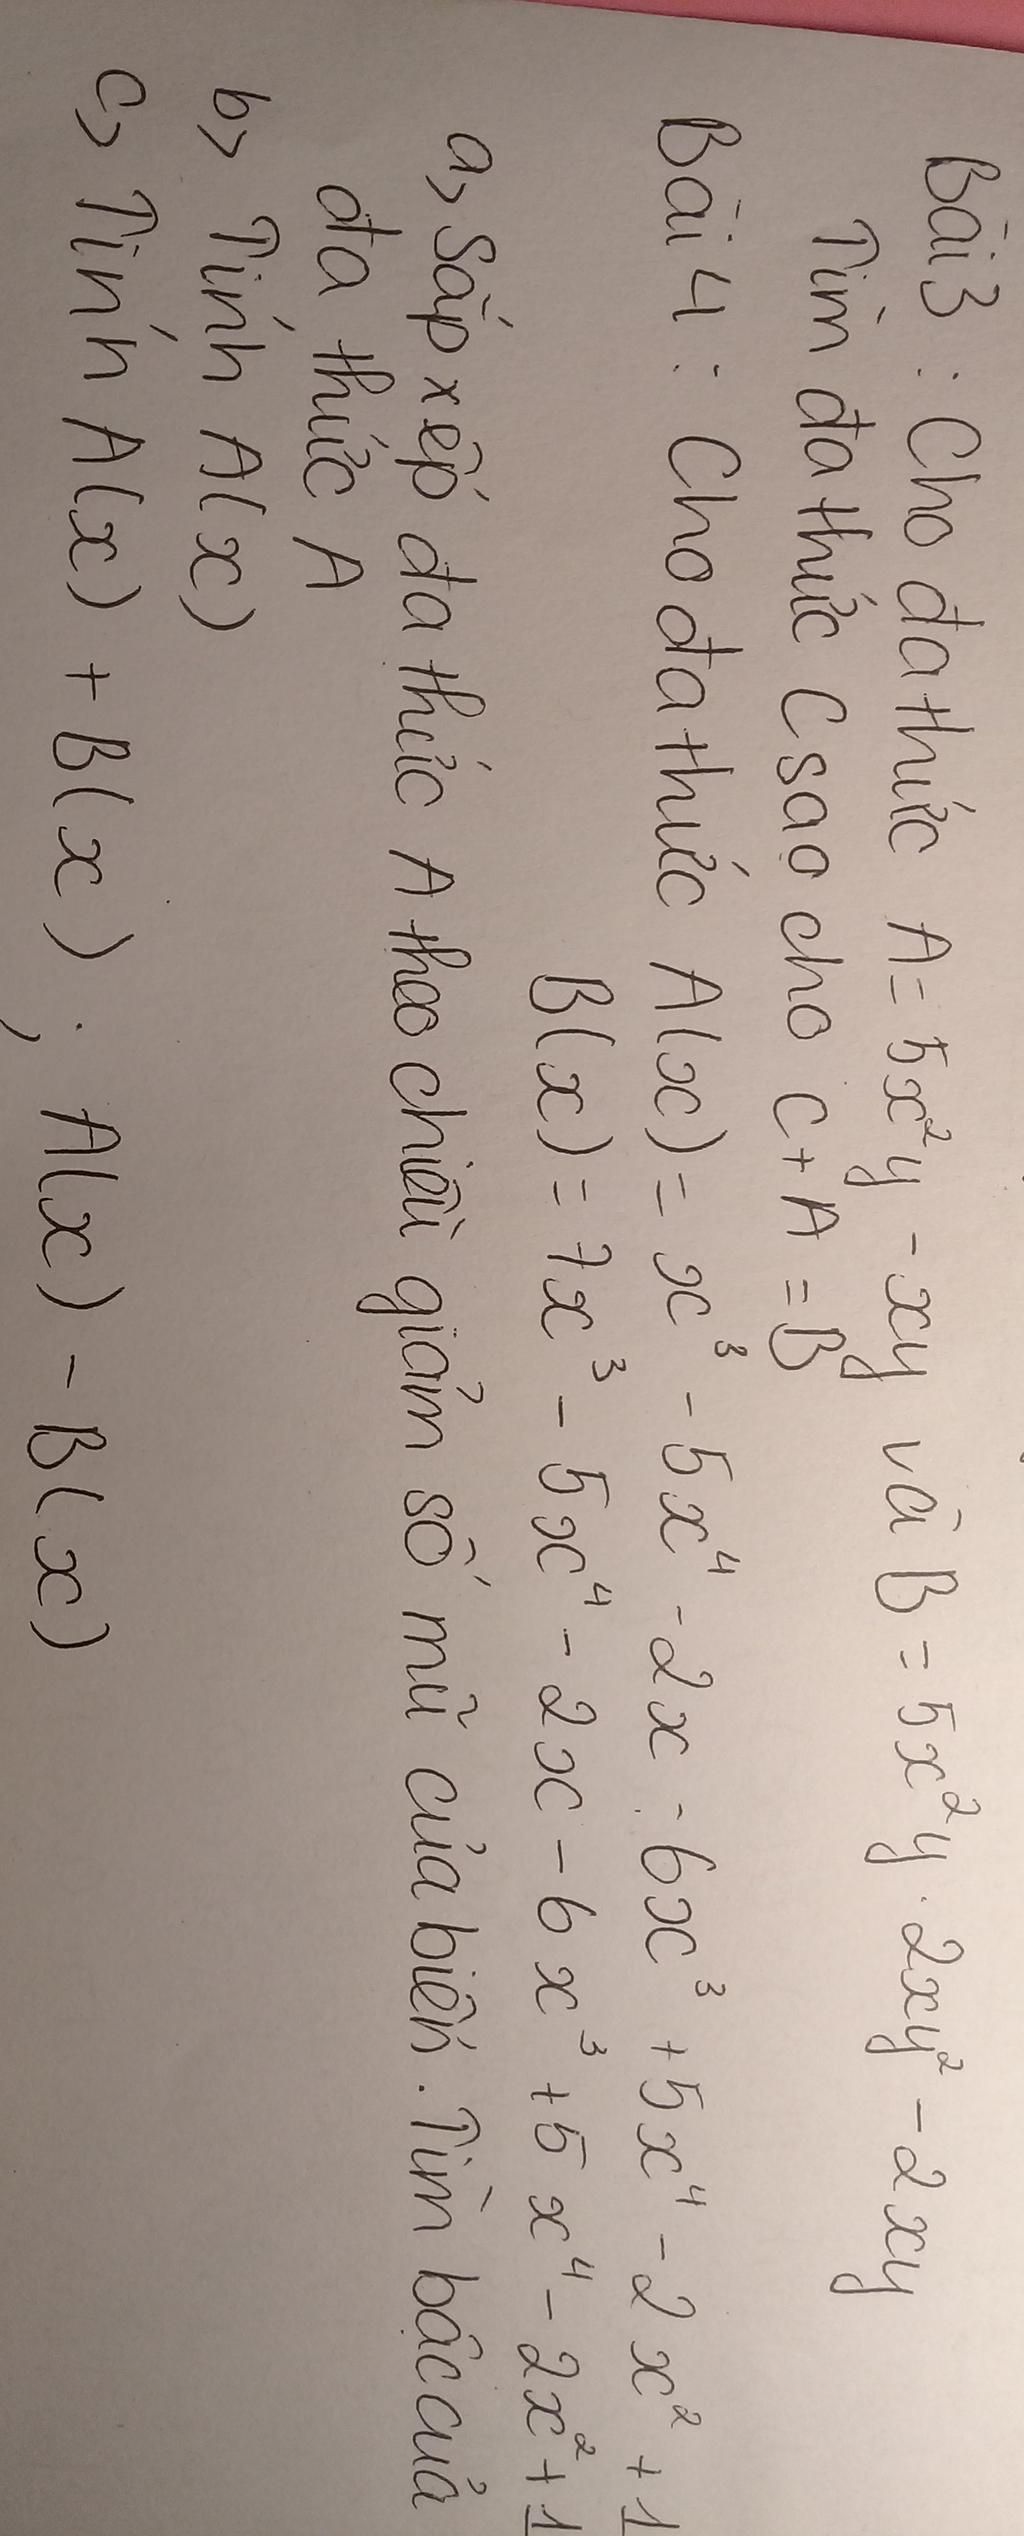 Bài 3 : Cho đa thức A = 5x²y - xy và B = 5x²y . 2xy² - 2xy
Tìm đa thức C sao cho C + A = B
Bài 4 : Cho đa thức A(x) = x³ - 5x⁴ - 2x - 6x³ + 5x⁴ - 2x² + 1
B(x) = 7x³ - 5x⁴ - 2x - 6x³ + 5x⁴ - 2x² + 1
a> Sắp xếp đa thức A theo chiều giảm số mũ của biến. Tìm bậc của
đa thức A
b> Tính A(x)
c> Tính A(x) + B(x) ; A(x) - B(x)